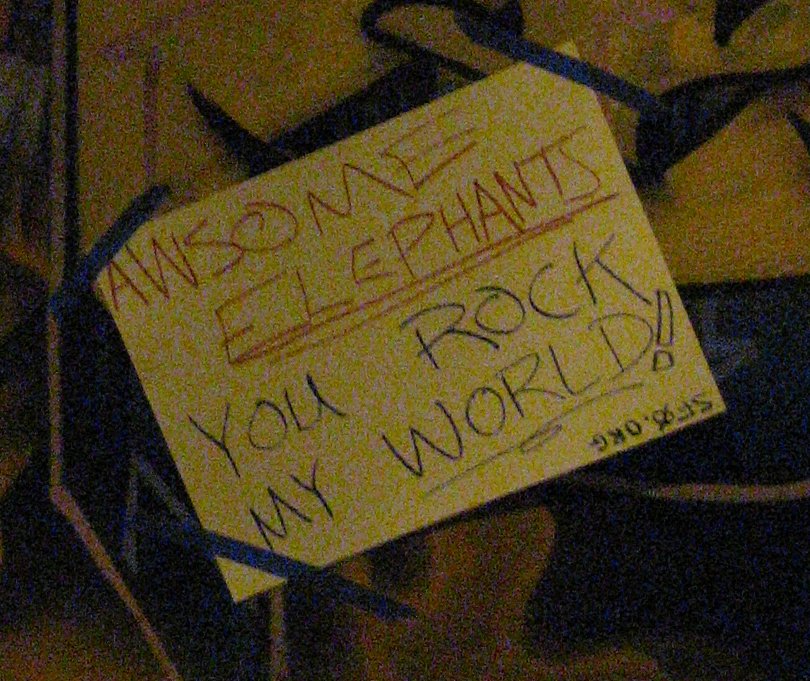 AWSOME
ELEPHANTS
YOU ROCK
MY WORLD!!
SFØ.ORG